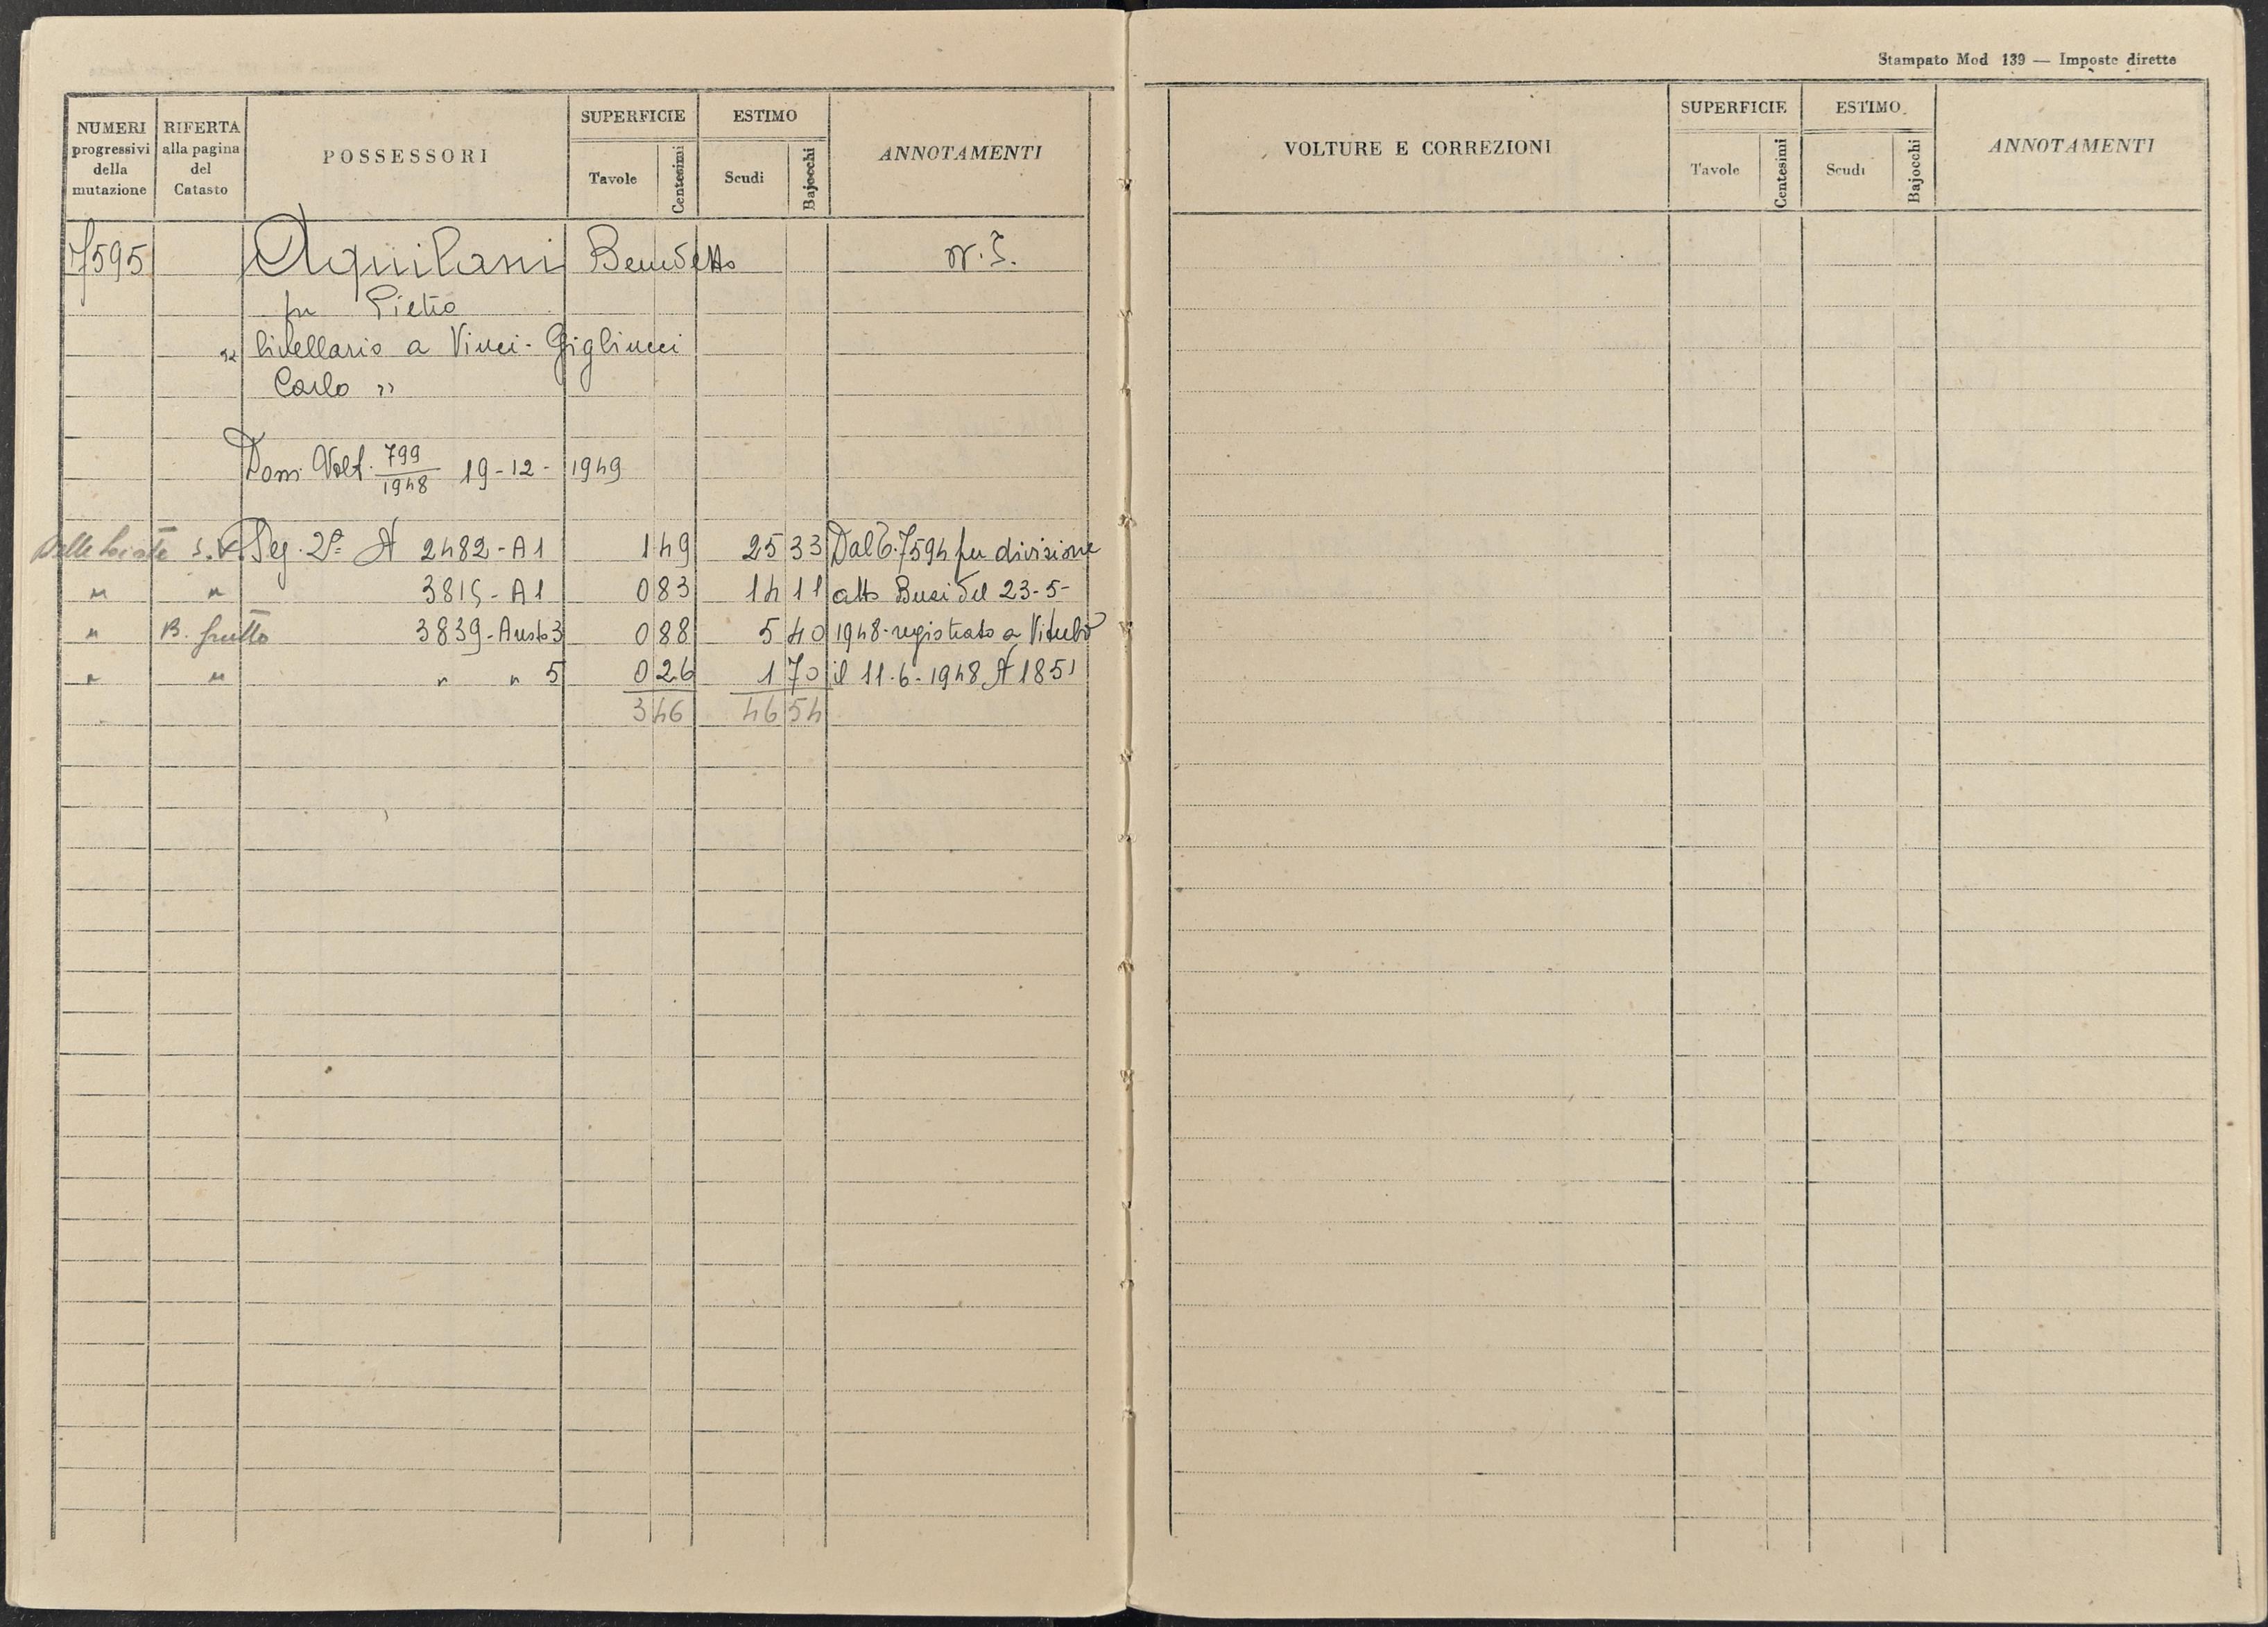 Stampato Mod 139 — Imposte dirette
NUMERI progressivi della mutazione
RIFERTA alla pagina del Catasto
POSSESSORI
SUPERFICIE
Tavole
Centesimi
ESTIMO
Scudi
Bajocchi
ANNOTAMENTI
7595 Aquilani Benedetto
fu Pietro
" livellario a Vinci-Gigliucci
Carlo "
Dom. Volt. 799/1948 19-12-1949
Seg. 2ª N 2482-A1 1 49 25 33 Dal C. 7594 per divisione
" " 3815-A1 0 83 14 11 atto Busi del 23-5-
" B. frutto 3839- 3 0 88 5 40 1948-registrato a Viterbo
" " " " 5 0 26 1 70 il 11-6-1948 N 1851
3 46 46 54
VOLTURE E CORREZIONI
SUPERFICIE
Tavole
Centesimi
ESTIMO
Scudi
Bajocchi
ANNOTAMENTI